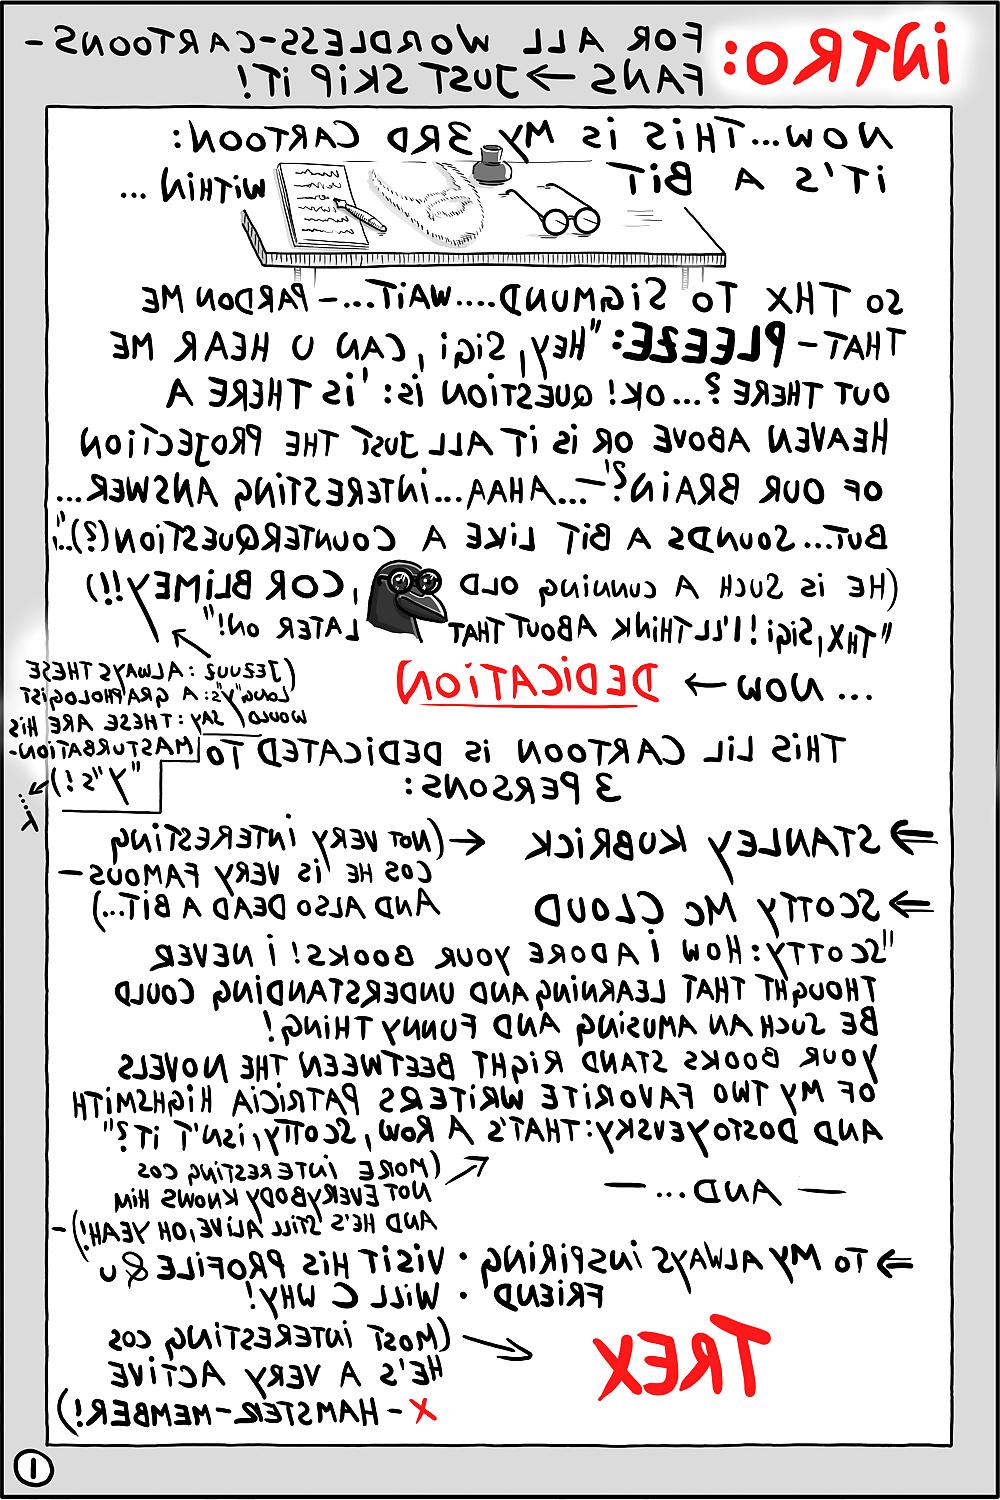 INTRO:
FOR ALL WORDLESS-CARTOONS-
FANS → JUST SKIP IT!
NOW...THIS IS MY 3RD CARTOON:
IT'S A BIT
WITHIN ...
SO THX TO SIGMUND....WAIT...- PARDON ME
THAT - PLEEZE: "HEY, SIGI, CAN U HEAR ME
OUT THERE?...OK! QUESTION IS: 'IS THERE A
HEAVEN ABOVE OR IS IT ALL JUST THE PROJECTION
OF OUR BRAIN?'-...AHAA...INTERESTING ANSWER...
BUT...SOUNDS A BIT LIKE A COUNTERQUESTION(?)..."
(HE IS SUCH A CUNNING OLD
, COR BLIMEY!!)
"THX, SIGI! I'LL THINK ABOUT THAT
LATER ON!"
(JEZUUZ: ALWAYS THESE
LONG "Y"S: A GRAPHOLOGIST
WOULD SAY: THESE ARE HIS
MASTURBATION-
"Y"S!)
... NOW → DEDICATION
THIS LIL CARTOON IS DEDICATED TO
3 PERSONS:
⇒ STANLEY KUBRICK
→ (NOT VERY INTERESTING
COS HE IS VERY FAMOUS -
AND ALSO DEAD A BIT...)
⇒ SCOTTY MC CLOUD
"SCOTTY: HOW I ADORE YOUR BOOKS! I NEVER
THOUGHT THAT LEARNING AND UNDERSTANDING COULD
BE SUCH AN AMUSING AND FUNNY THING!
YOUR BOOKS STAND RIGHT BEETWEEN THE NOVELS
OF MY TWO FAVORITE WRITERS PATRICIA HIGHSMITH
AND DOSTOYEVSKY: THAT'S A ROW, SCOTTY, ISN'T IT?"
(MORE INTERESTING COS
NOT EVERYBODY KNOWS HIM
AND HE'S STILL ALIVE, OH YEAH!) -
- AND... -
⇒ TO MY ALWAYS INSPIRING
FRIEND
• VISIT HIS PROFILE & U
• WILL C WHY!
TREX
(MOST INTERESTING COS
HE'S A VERY ACTIVE
X - HAMSTER-MEMBER!)
1